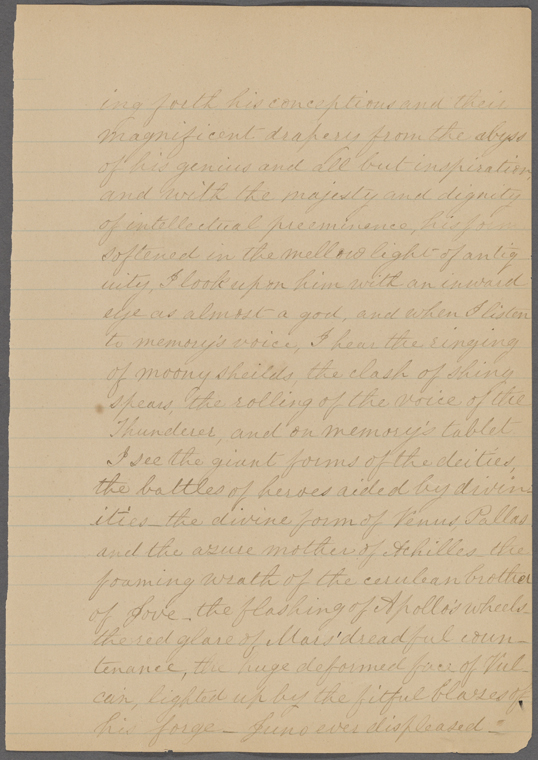 ing forth his conceptions and their
magnificent drapery from the abyss
of his genius and all but inspiration,
and with the majesty and dignity
of intellectual preeminence, his form
softened in the mellow light of antiq
uity, I look upon him with an inward
eye as almost a god, and when I listen
to memory's voice, I hear the ringing
of moony sheilds, the clash of shing
spears, the rolling of the voice of the
Thunderer, and on memory's tablet
I see the giant forms of the deities,
the battles of heroes aided by divin-
ities - the divine form of Venus, Pallas
and the azure mother of Achilles - the
foaming wrath of the cerulean brother
of Jove - the flashing of Apollo's wheels
the red glare of Mars' dreadful coun-
tenance, the huge deformed face of Vul-
can, lighted up by the fitful blazes of
his forge - Juno ever displeased -